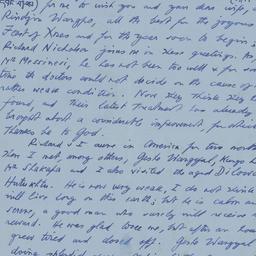 for me to wish you and your dear wife,
Rinzjin Wangpo, all the best for the joyous
Feast of Xmas and for the year soon to begin;
Richard Nicholson joins in these greetings. As
Mr Messinesi, he has not been too well & for some
time the doctors could not decide on the cause of
rather weak condition. Now they think they have
found, and their latest treatment has already
brought about a considerable improvement, for which
thanks be to God.
Richard & I were in America for two months
Then I met, among others, Geshe Wangyal,
Mr Shakapa and I also visited the aged Dilowa
Hutukhtu. He is now very weak, I do not think
will live long on this earth; but he is calm and
serene, a good man who surely will receive a
reward. He was glad to see me, but after an hour
grew tired and dozed off. Geshe Wangyal
doing splendid